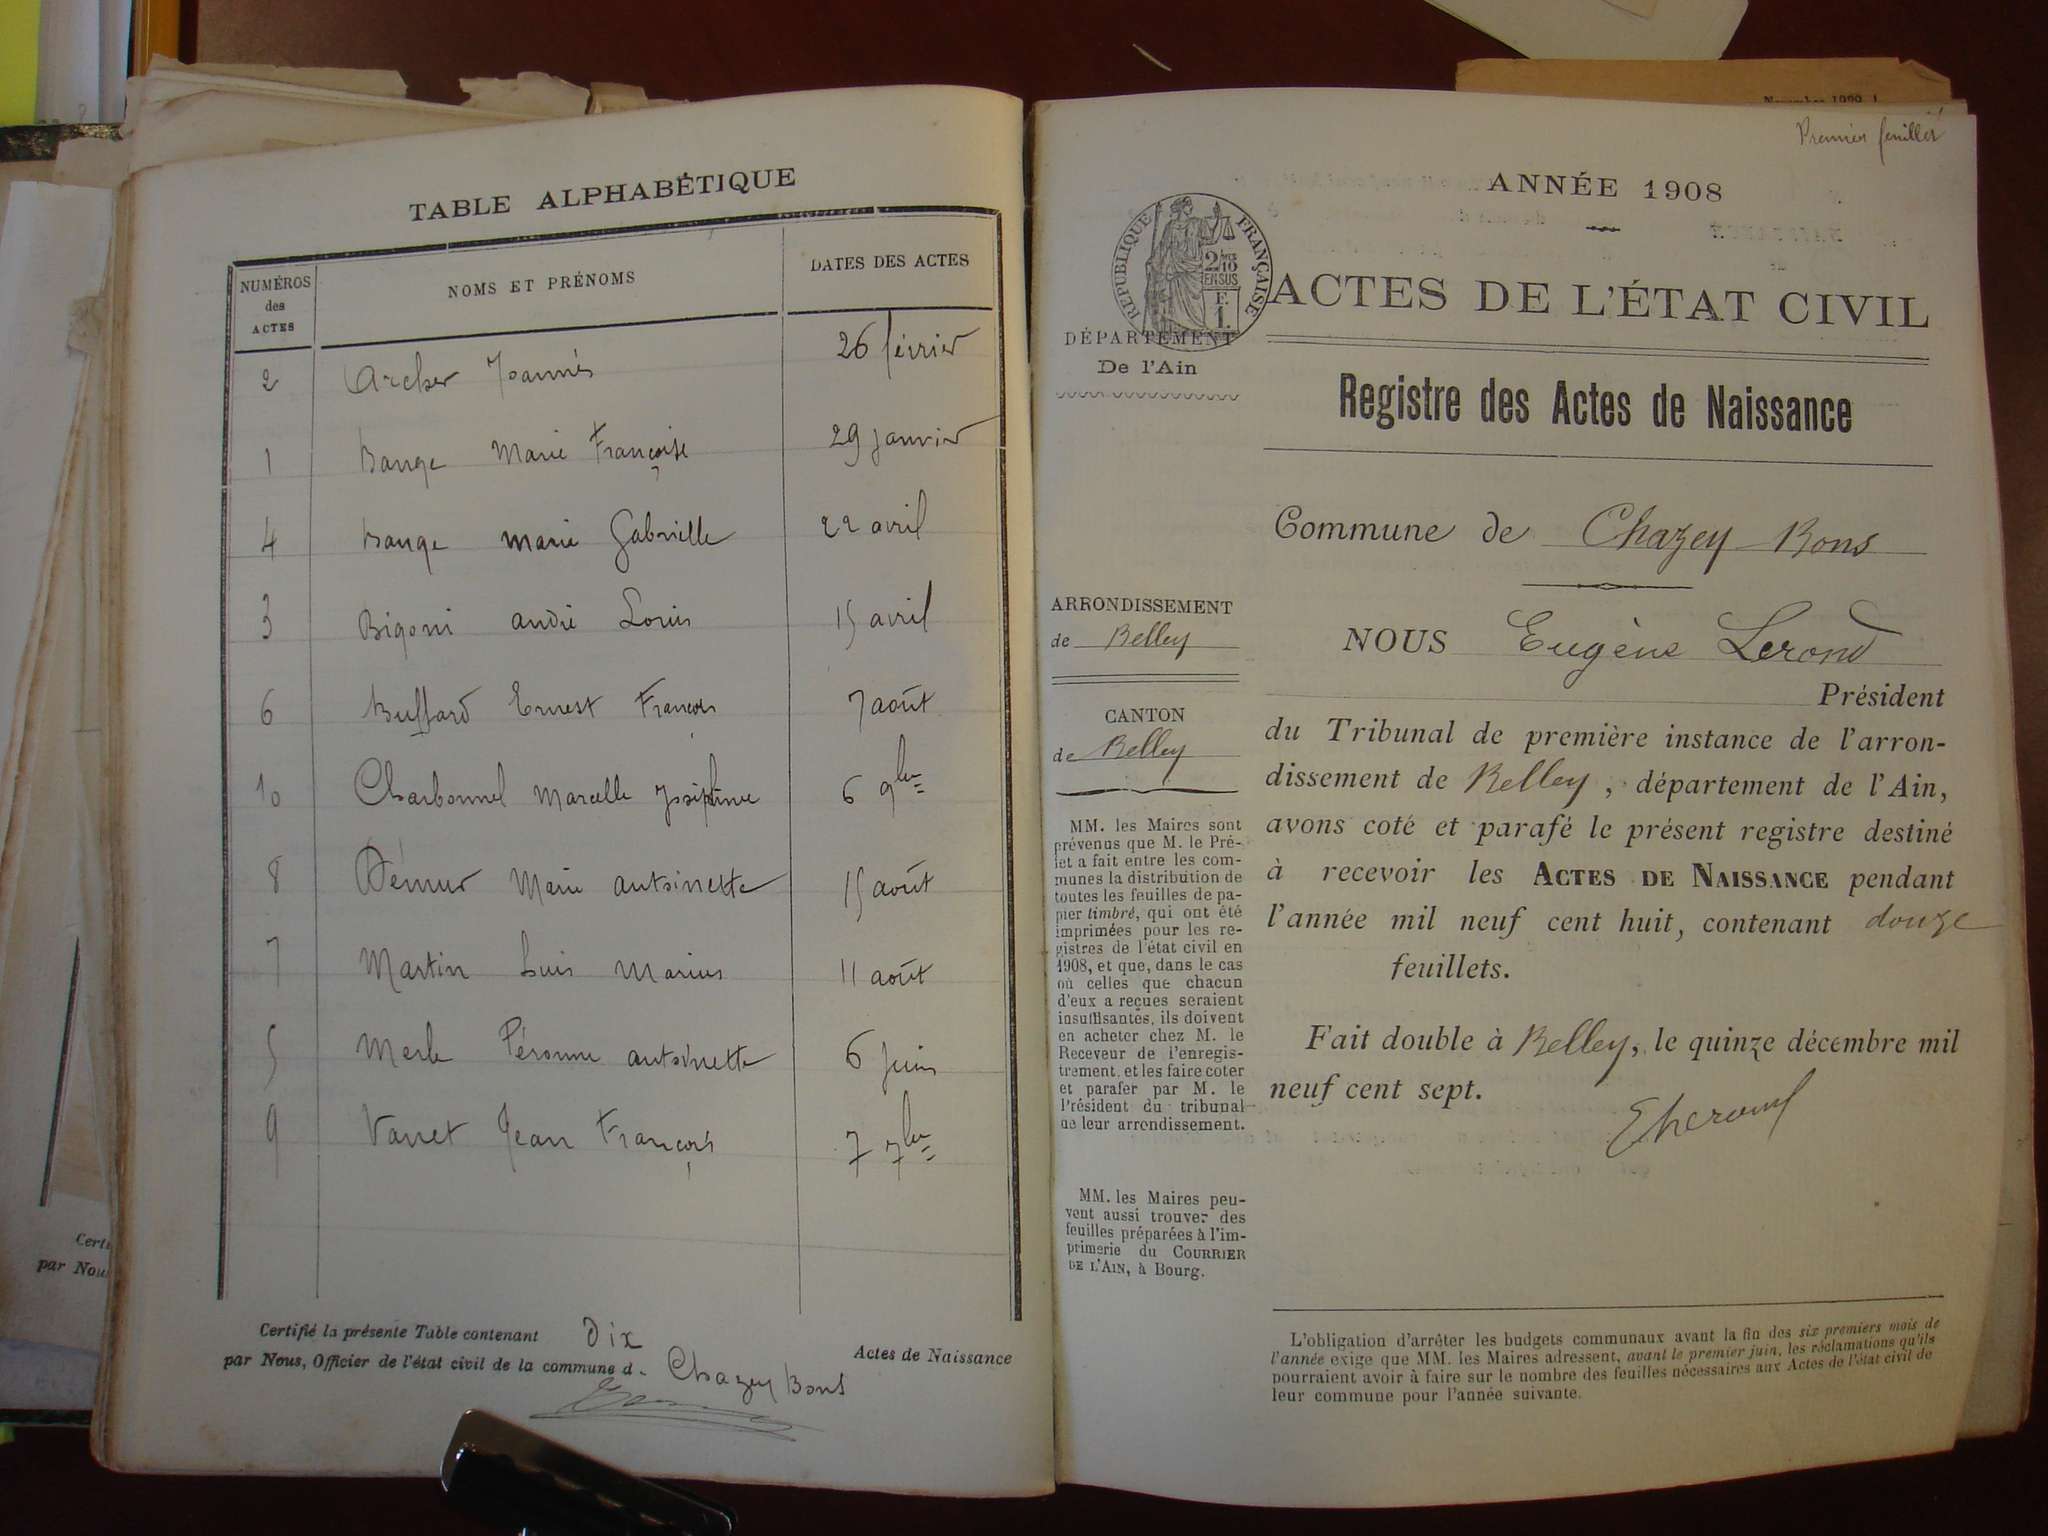 TABLE ALPHABÉTIQUE
NUMÉROS des ACTES
NOMS ET PRÉNOMS
DATES DES ACTES
2 Archer Joannès 26 février
1 Bange Marie Françoise 29 janvier
4 Bange Marie Gabrielle 22 avril
3 Bigoni andré Louis 15 avril
6 Buffard Ernest François 7 août
10 Charbonnel Marcelle Joséphine 6 9bre
8 Démur Marie antoinette 15 août
7 Martin Louis Marius 11 août
5 Merle Péronne antoinette 6 juin
9 Vanet Jean François 7 7bre
Certifié la présente Table contenant dix Actes de Naissance
par Nous, Officier de l'état civil de la commune d. Chazey Bons
Certi
par Nous
Premier feuillet
ANNÉE 1908
RÉPUBLIQUE FRANÇAISE
2/10
EN SUS
F.
1.
ACTES DE L'ÉTAT CIVIL
DÉPARTEMENT
De l'Ain
Registre des Actes de Naissance
Commune de Chazey Bons
ARRONDISSEMENT
de Belley
CANTON
de Belley
NOUS Eugène Lerond
Président
du Tribunal de première instance de l'arron-
dissement de Belley, département de l'Ain,
avons coté et parafé le présent registre destiné
à recevoir les ACTES DE NAISSANCE pendant
l'année mil neuf cent huit, contenant douze
feuillets.
Fait double à Belley, le quinze décembre mil
neuf cent sept.
MM. les Maires sont
prévenus que M. le Pré-
fet a fait entre les com-
munes la distribution de
toutes les feuilles de pa-
pier timbré, qui ont été
imprimées pour les re-
gistres de l'état civil en
1908, et que, dans le cas
où celles que chacun
d'eux a reçues seraient
insuffisantes, ils doivent
en acheter chez M. le
Receveur de l'enregis-
trement, et les faire coter
et parafer par M. le
Président du tribunal
de leur arrondissement.
MM. les Maires peu-
vent aussi trouver des
feuilles préparées à l'im-
primerie du COURRIER
DE L'AIN, à Bourg.
L'obligation d'arrêter les budgets communaux avant la fin des six premiers mois de
l'année exige que MM. les Maires adressent, avant le premier juin, les réclamations qu'ils
pourraient avoir à faire sur le nombre des feuilles nécessaires aux Actes de l'état civil de
leur commune pour l'année suivante.